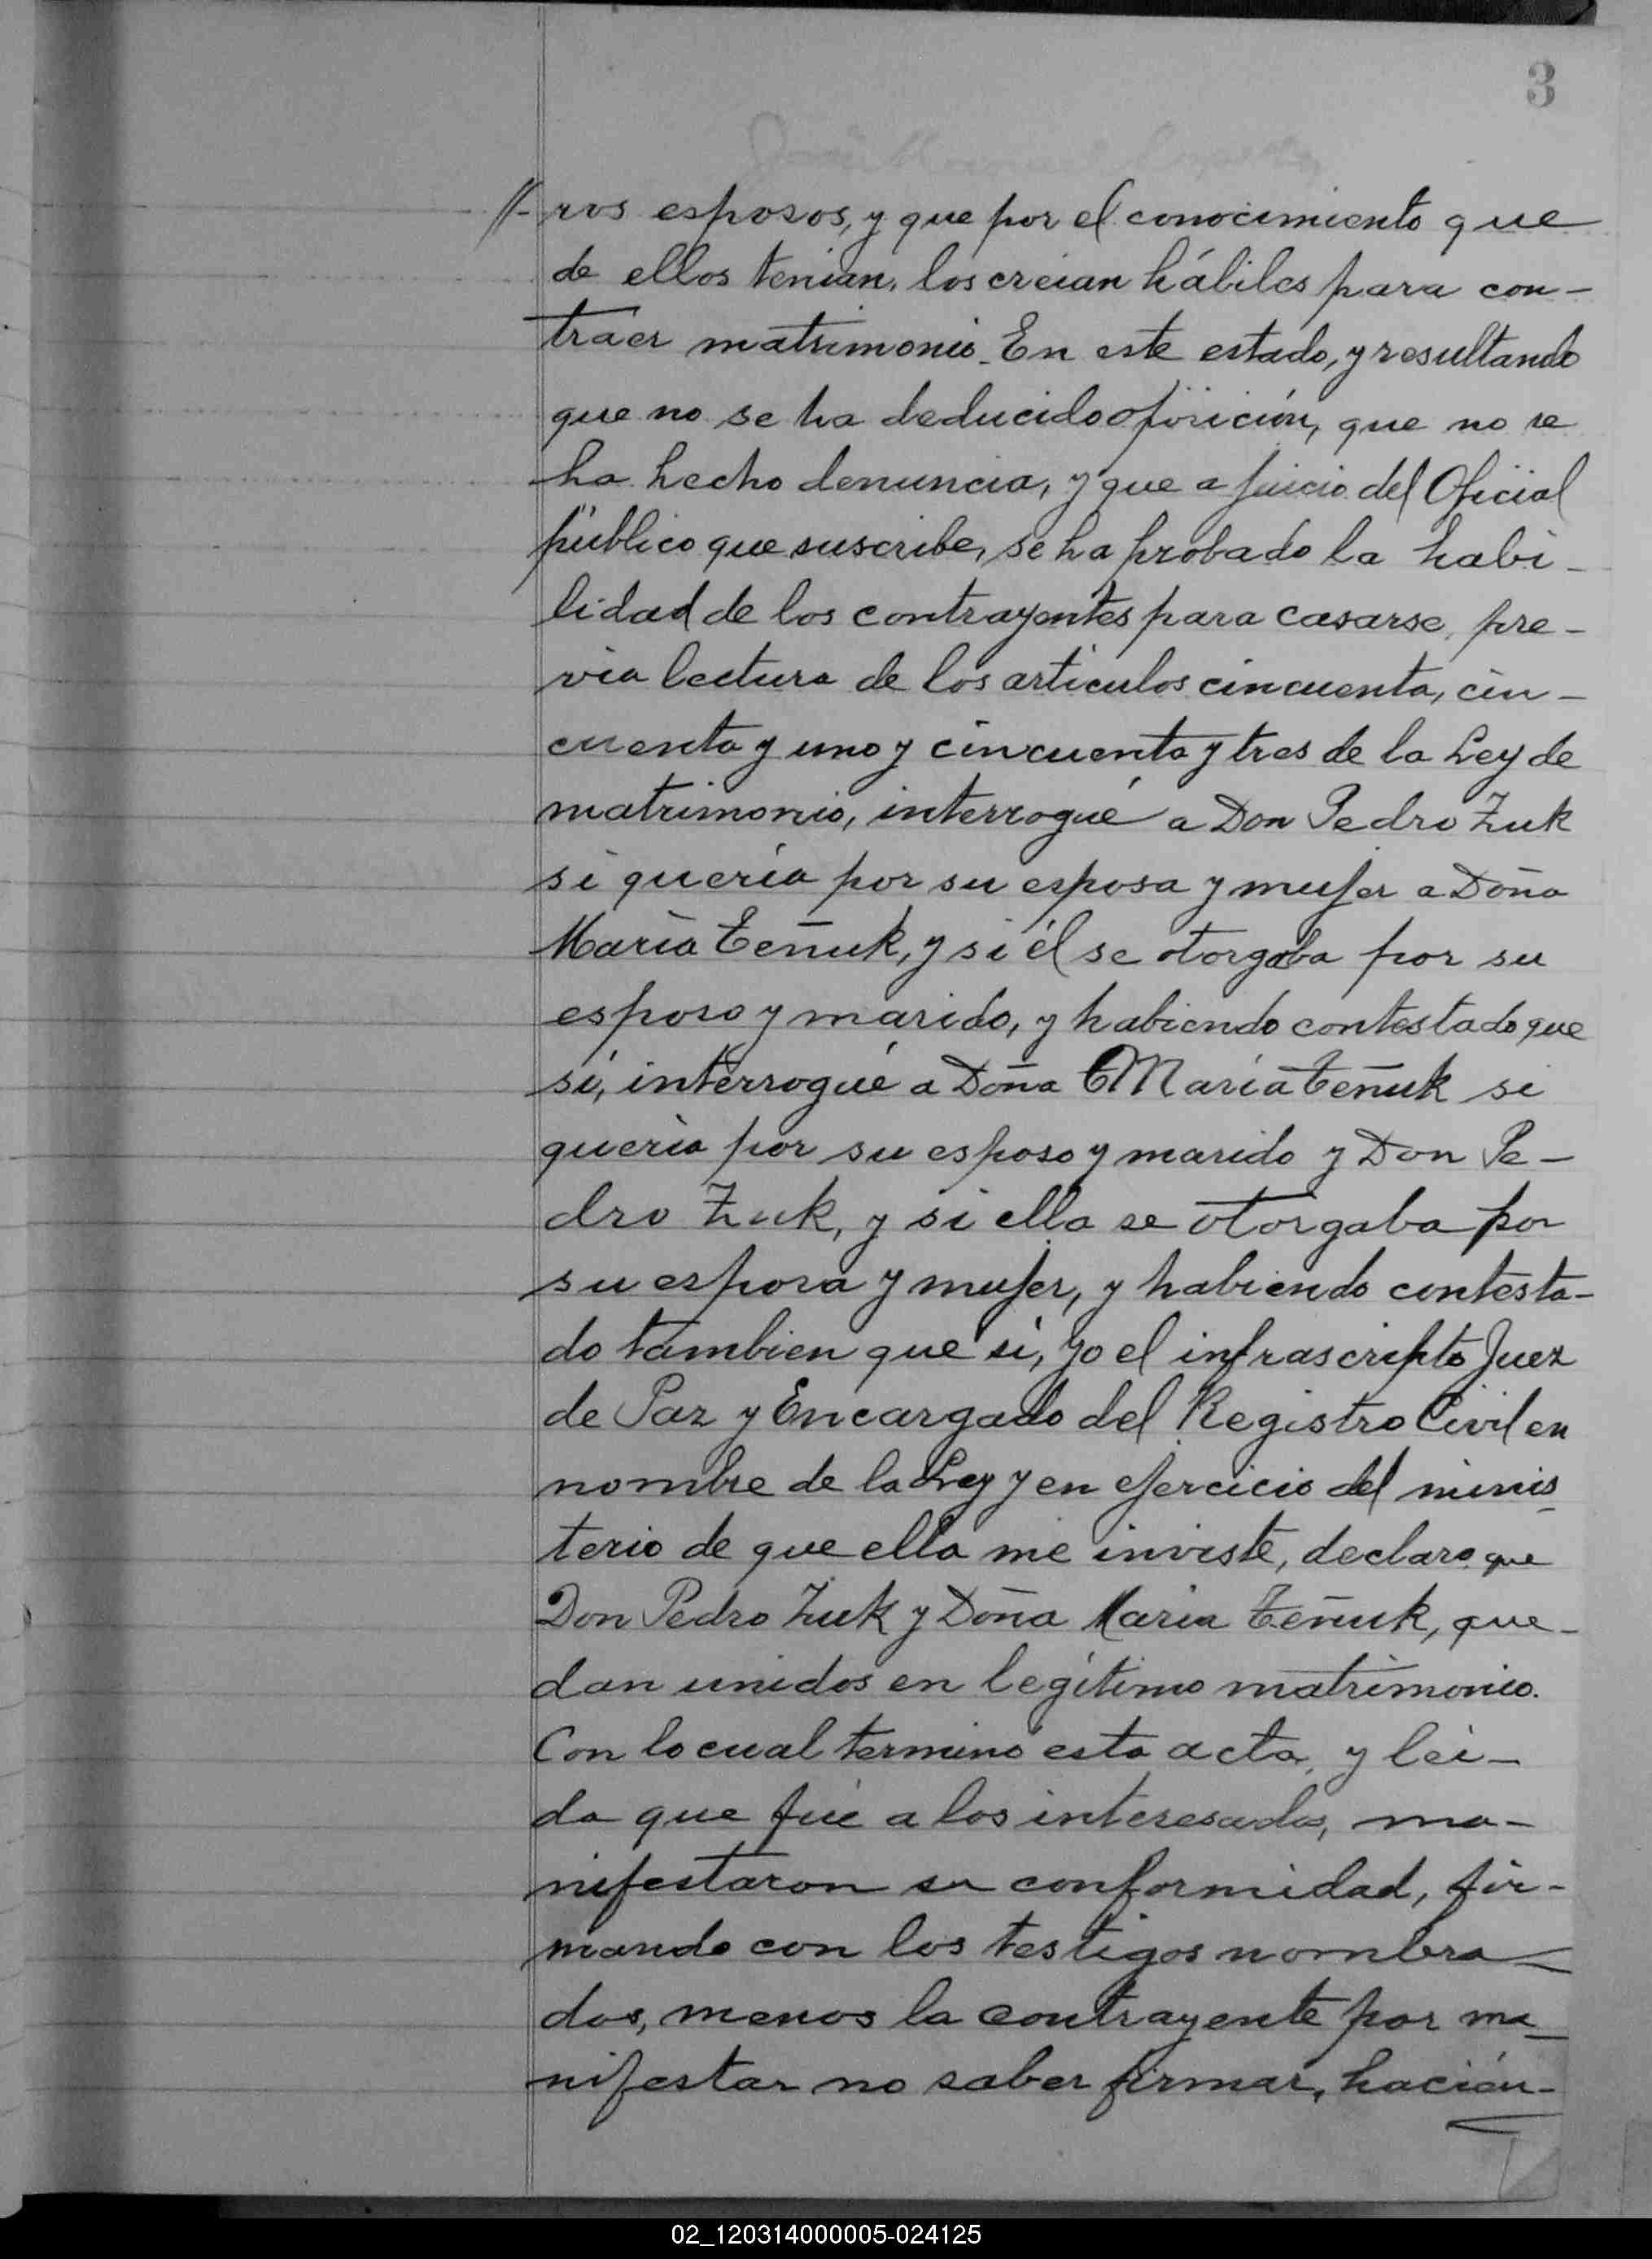 3
//-ros esposos, y que por el conocimiento que
de ellos tenian, los creian hábiles para con-
traer matrimonio. En este estado, y resultando
que no se ha deducido oposición, que no se
ha hecho denuncia, y que a juicio del Oficial
público que suscribe, se ha probado la habi-
lidad de los contrayentes para casarse, pre-
via lectura de los articulos cincuenta, cin-
cuenta y uno y cincuenta y tres de la Ley de
matrimonio, interrogué a Don Pedro Zuk
si quería por su esposa y mujer a Doña
María Teñuk, y si él se otorgaba por su
esposo y marido, y habiendo contestado que
sí, interrogué a Doña María Teñuk si
quería por su esposo y marido y Don Pe-
dro Zuk, y si ella se otorgaba por
su esposa y mujer, y habiendo contesta-
do tambien que sí, yo el infrascripto Juez
de Paz y Encargado del Registro Civil en
nombre de la Ley y en ejercicio del minis-
terio de que ella me inviste, declaro que
Don Pedro Zuk y Doña Maria Teñuk, que-
dan unidos en legítimo matrimonio.
Con lo cual terminó esta acta, y lei-
da que fué a los interesados, ma-
nifestaron su conformidad, fir-
mando con los testigos nombra-
dos, menos la contrayente por ma-
nifestar no saber firmar, hacién-
02_120314000005-024125